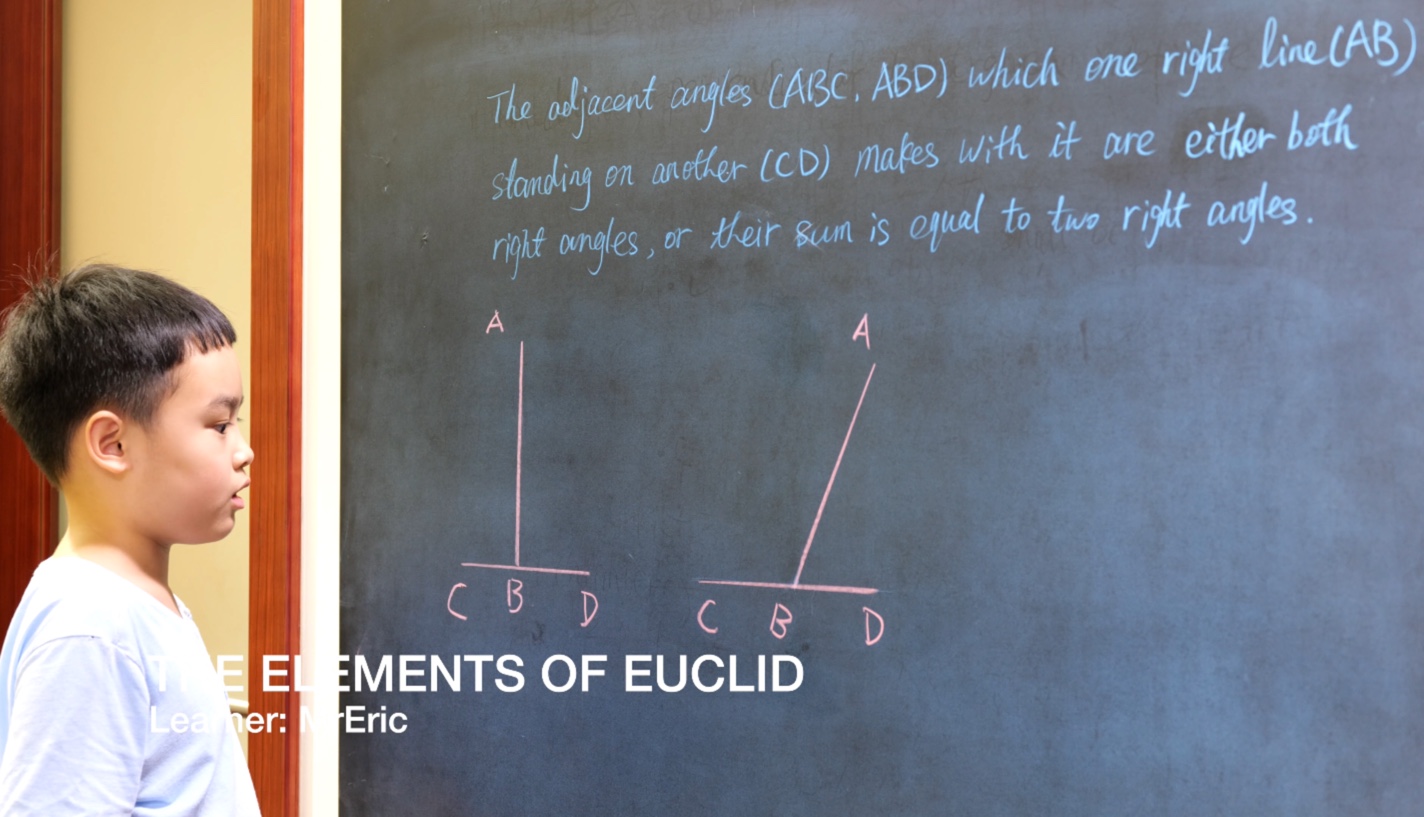 The adjacent angles (ABC, ABD) which one right line (AB)
standing on another (CD) makes with it are either both
right angles, or their sum is equal to two right angles.
A
A
C B D
C B D
THE ELEMENTS OF EUCLID
Learner: MrEric